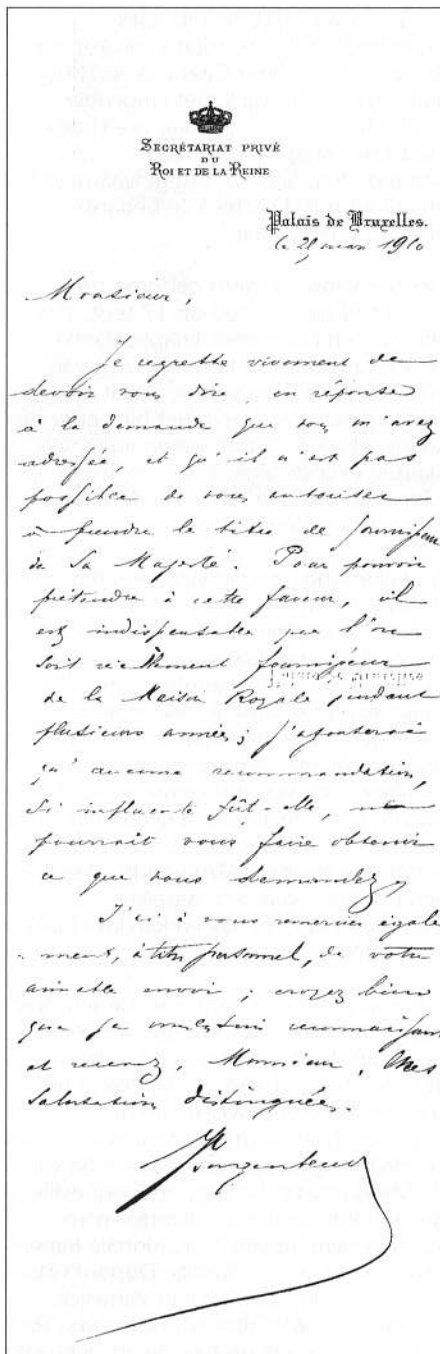 SECRÉTARIAT PRIVÉ
DU
ROI ET DE LA REINE
Palais de Bruxelles.
le 21 mars 1910
Monsieur,
Je regrette vivement de
devoir vous dire en réponse
à la demande que vous m'avez
adressée et qu'il n'est pas
possible de vous autoriser
à prendre le titre de fournisseur
de Sa Majesté. Pour pouvoir
prétendre à cette faveur, il
est indispensable que l'on
soit réellement fournisseur
de la Maison Royale pendant
plusieurs années; j'ajouterai
qu'aucune recommandation,
si influente fût-elle, ne
pourrait vous faire obtenir
ce que vous demandez,
J'ai à vous remercier égale
-ment, à titre personnel, de votre
aimable envoi; croyez bien
que je vous en suis reconnaissant
et recevez, Monsieur, mes
salutations distinguées.